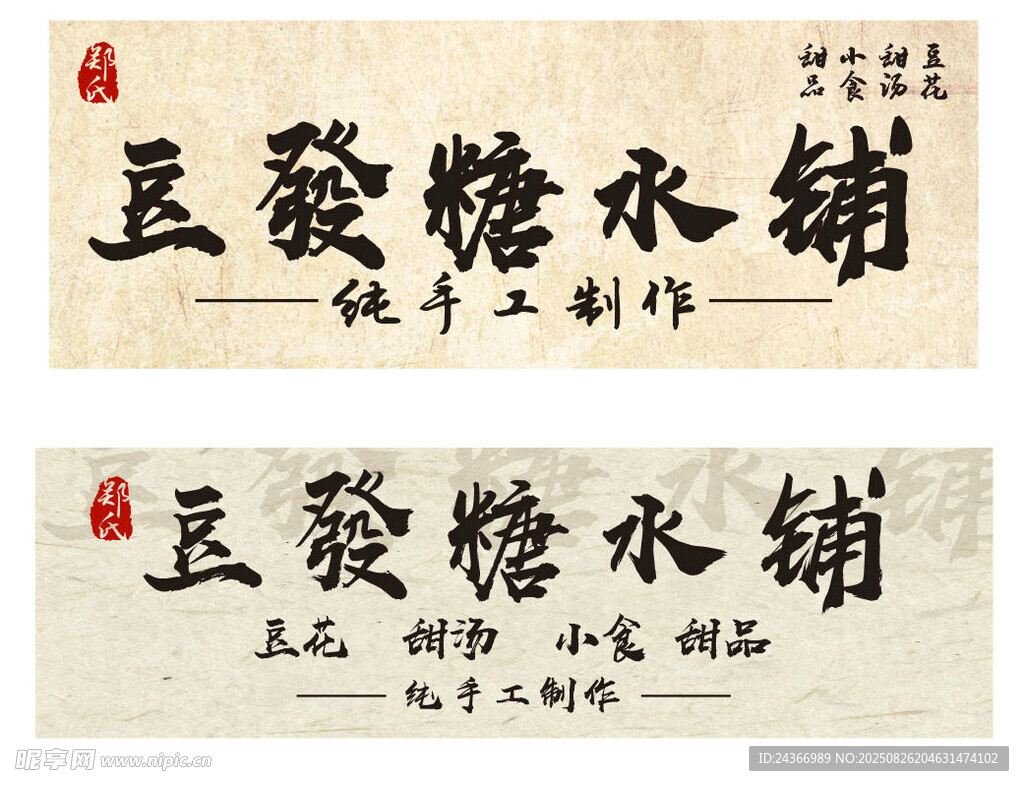 郑氏
豆花
甜汤
小食
甜品
豆發糖水铺
纯手工制作
豆發糖水铺
郑氏
豆發糖水铺
豆花 甜汤 小食 甜品
纯手工制作
昵享网 www.nipic.cn
ID:24366989 NO:20250826204631474102